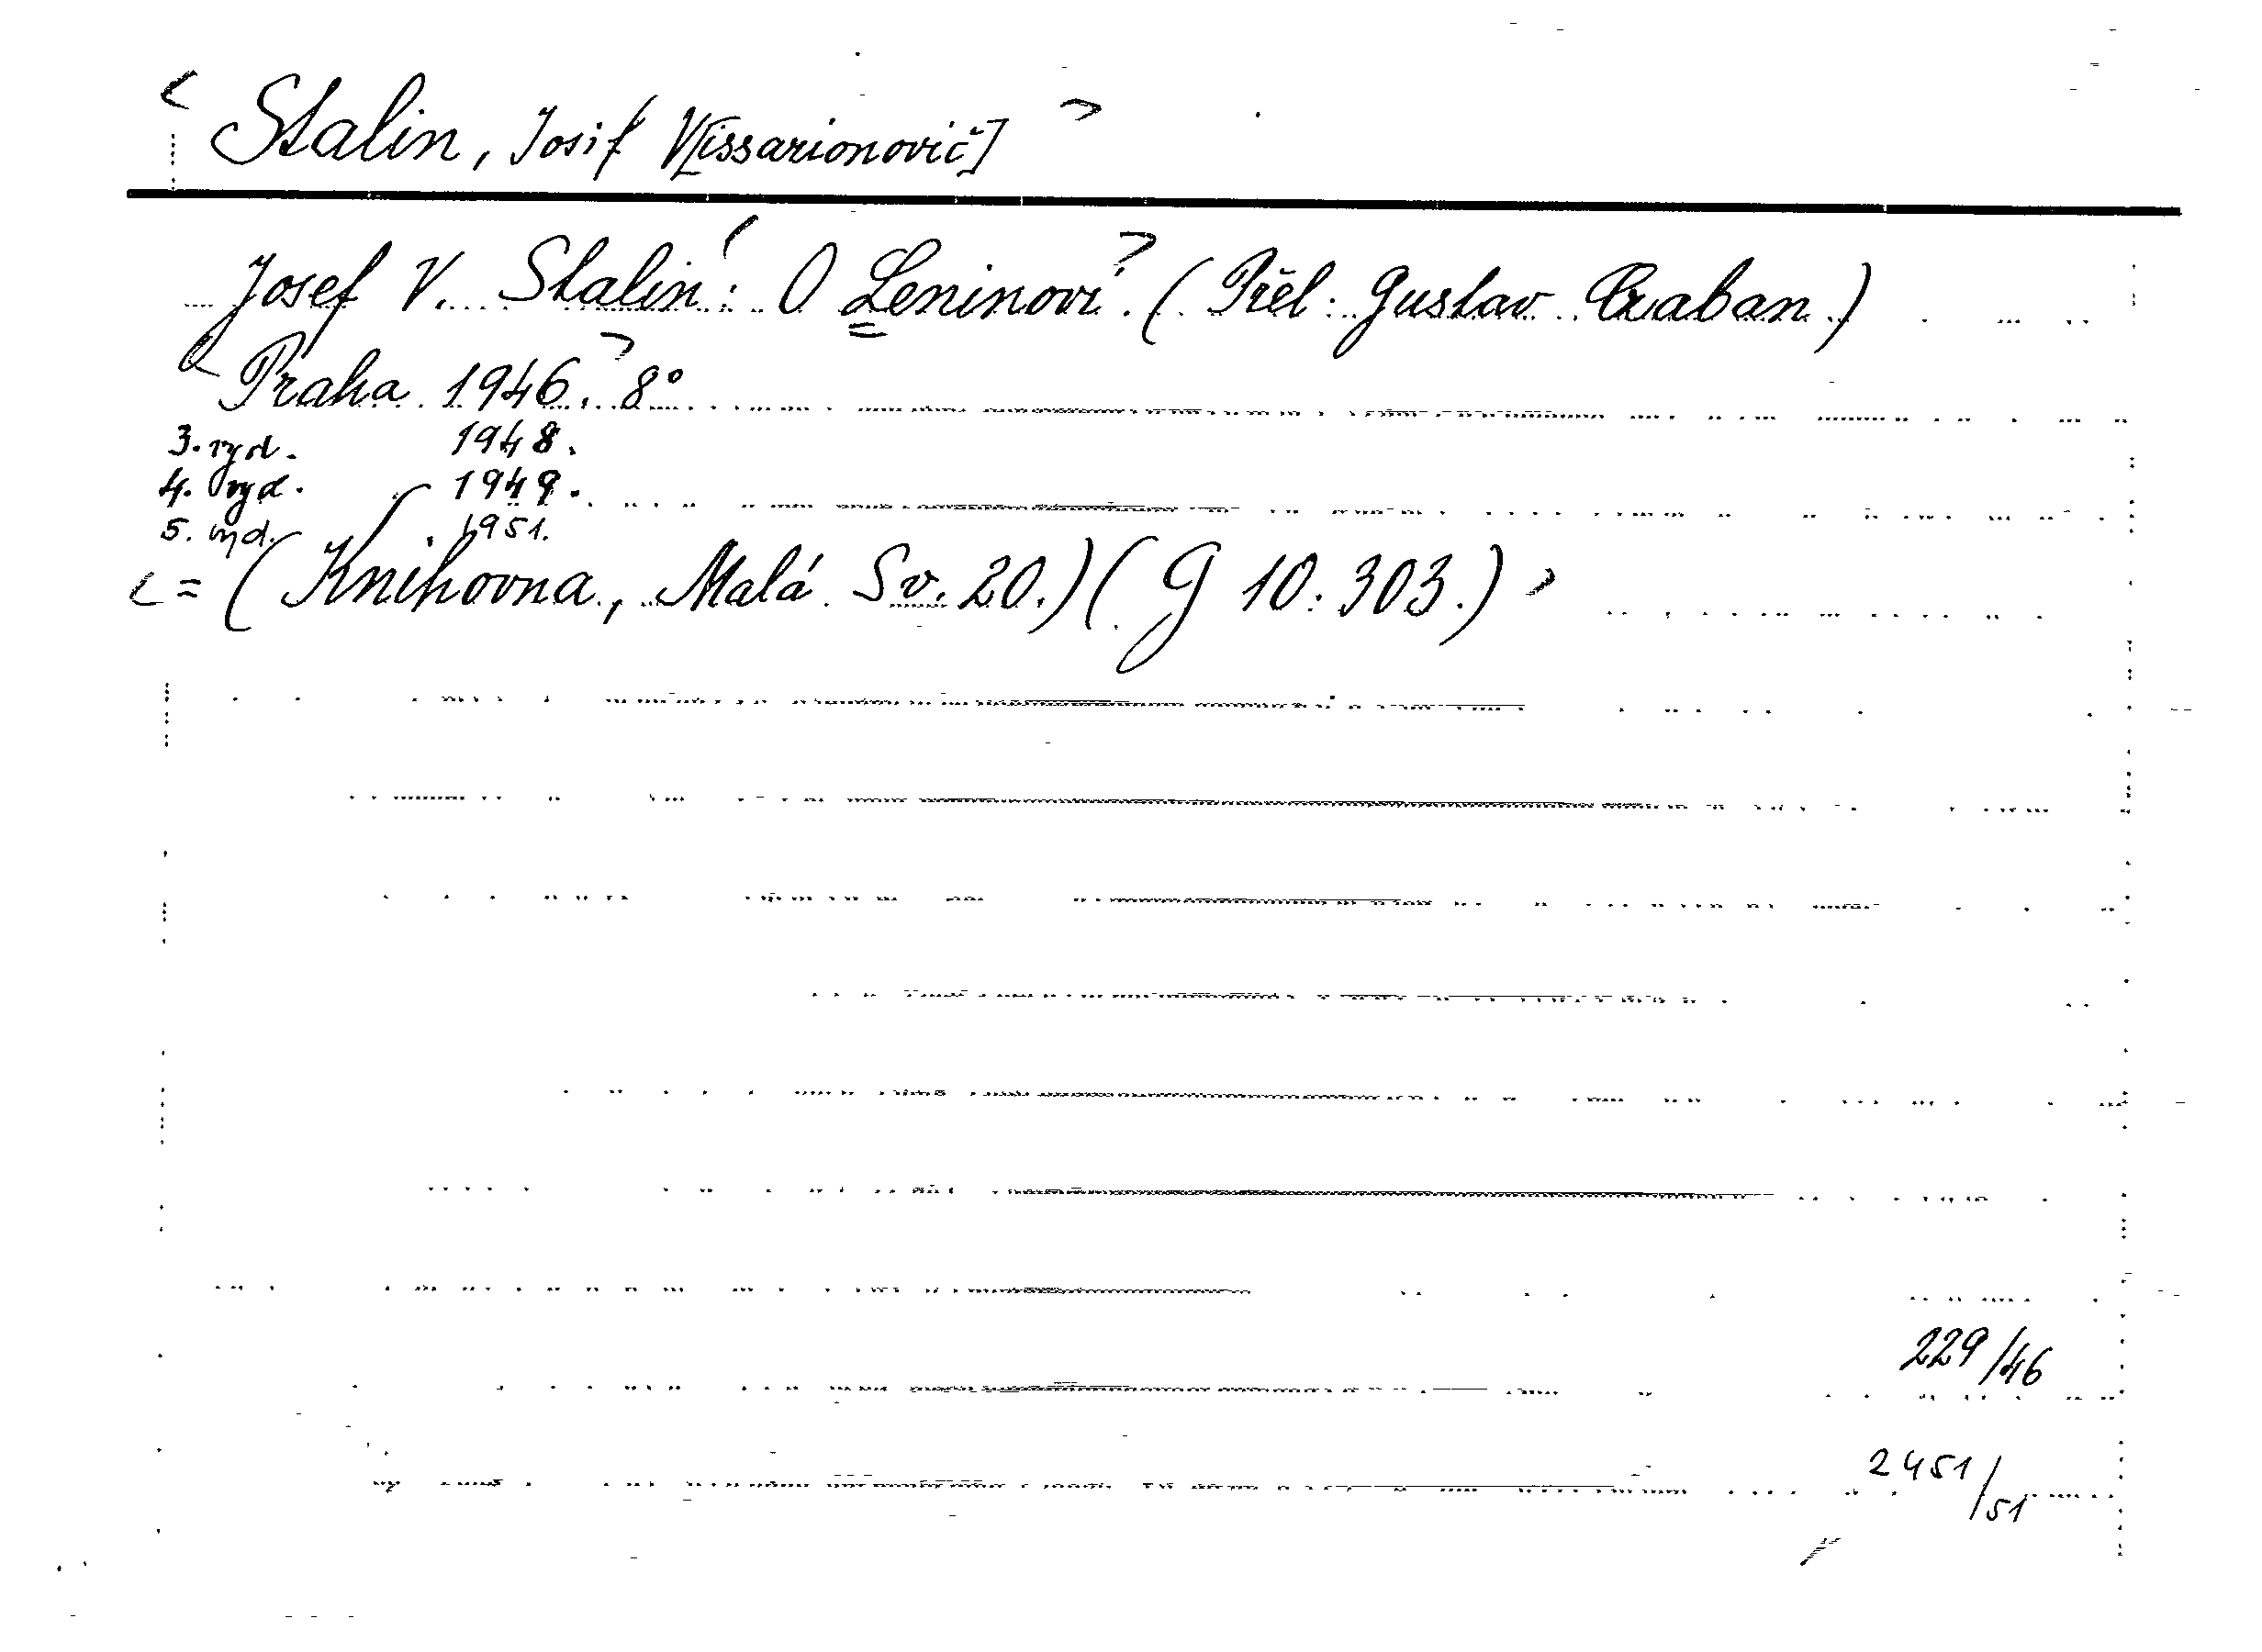 < Stalin, Josif V[issarionovič] >
Josef V. Stalin: <O Leninovi.> (Přel. Gustav)
<Praha 1946.> 8°
3. vyd. 1948.
4. vyd. 1949.
5. vyd. 1951.
<= (Knihovna, Malá Sv. 20.) (G 10.303.)>
229/46
2451/51